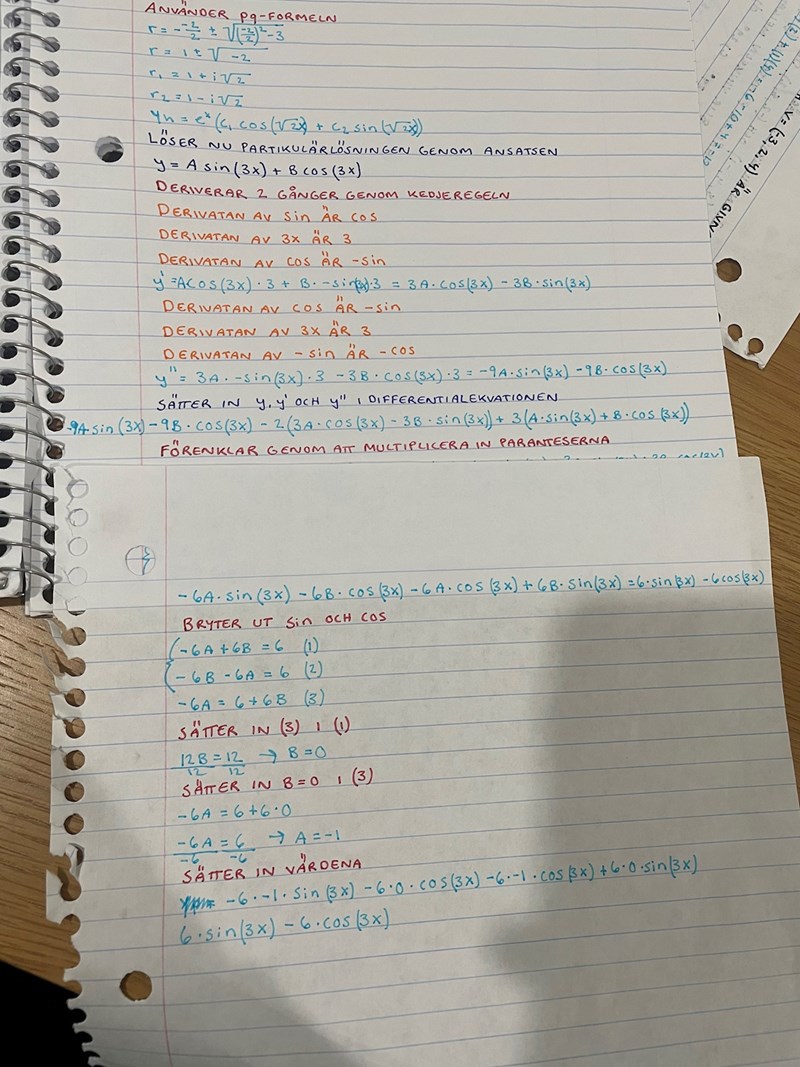 ANVÄNDER pq-FORMELN
r = - -2/2 ± √(-2/2)² - 3
r = 1 ± √-2
r₁ = 1 + i√2
r₂ = 1 - i√2
yh = eˣ(C₁ cos(√2x) + C₂ sin(√2x))
LÖSER NU PARTIKULÄRLÖSNINGEN GENOM ANSATSEN
y = A sin(3x) + B cos(3x)
DERIVERAR 2 GÅNGER GENOM KEDJEREGELN
DERIVATAN AV sin ÄR COS
DERIVATAN AV 3x ÄR 3
DERIVATAN AV COS ÄR -sin
y' = A cos(3x) · 3 + B · -sin(3x) · 3 = 3A · cos(3x) - 3B · sin(3x)
DERIVATAN AV COS ÄR -sin
DERIVATAN AV 3x ÄR 3
DERIVATAN AV - sin ÄR - COS
y'' = 3A · -sin(3x) · 3 - 3B · cos(3x) · 3 = -9A · sin(3x) - 9B · cos(3x)
SÄTTER IN y, y' OCH y'' I DIFFERENTIALEKVATIONEN
-9A sin(3x) - 9B · cos(3x) - 2(3A · cos(3x) - 3B · sin(3x)) + 3(A · sin(3x) + B · cos(3x))
FÖRENKLAR GENOM ATT MULTIPLICERA IN PARANTESERNA
-6A · sin(3x) - 6B · cos(3x) - 6A · cos(3x) + 6B · sin(3x) = 6 · sin(3x) - 6cos(3x)
BRYTER UT Sin OCH COS
-6A + 6B = 6 (1)
-6B - 6A = 6 (2)
-6A = 6 + 6B (3)
SÄTTER IN (3) I (1)
12B/12 = 12/12 → B = 0
SÄTTER IN B = 0 I (3)
-6A = 6 + 6 · 0
-6A/-6 = 6/-6 → A = -1
SÄTTER IN VÄRDENA
-6 · -1 · sin(3x) - 6 · 0 · cos(3x) - 6 · -1 · cos(3x) + 6 · 0 · sin(3x)
6 · sin(3x) - 6 · cos(3x)
V = (-3, 2, 4) ÄR GIVN